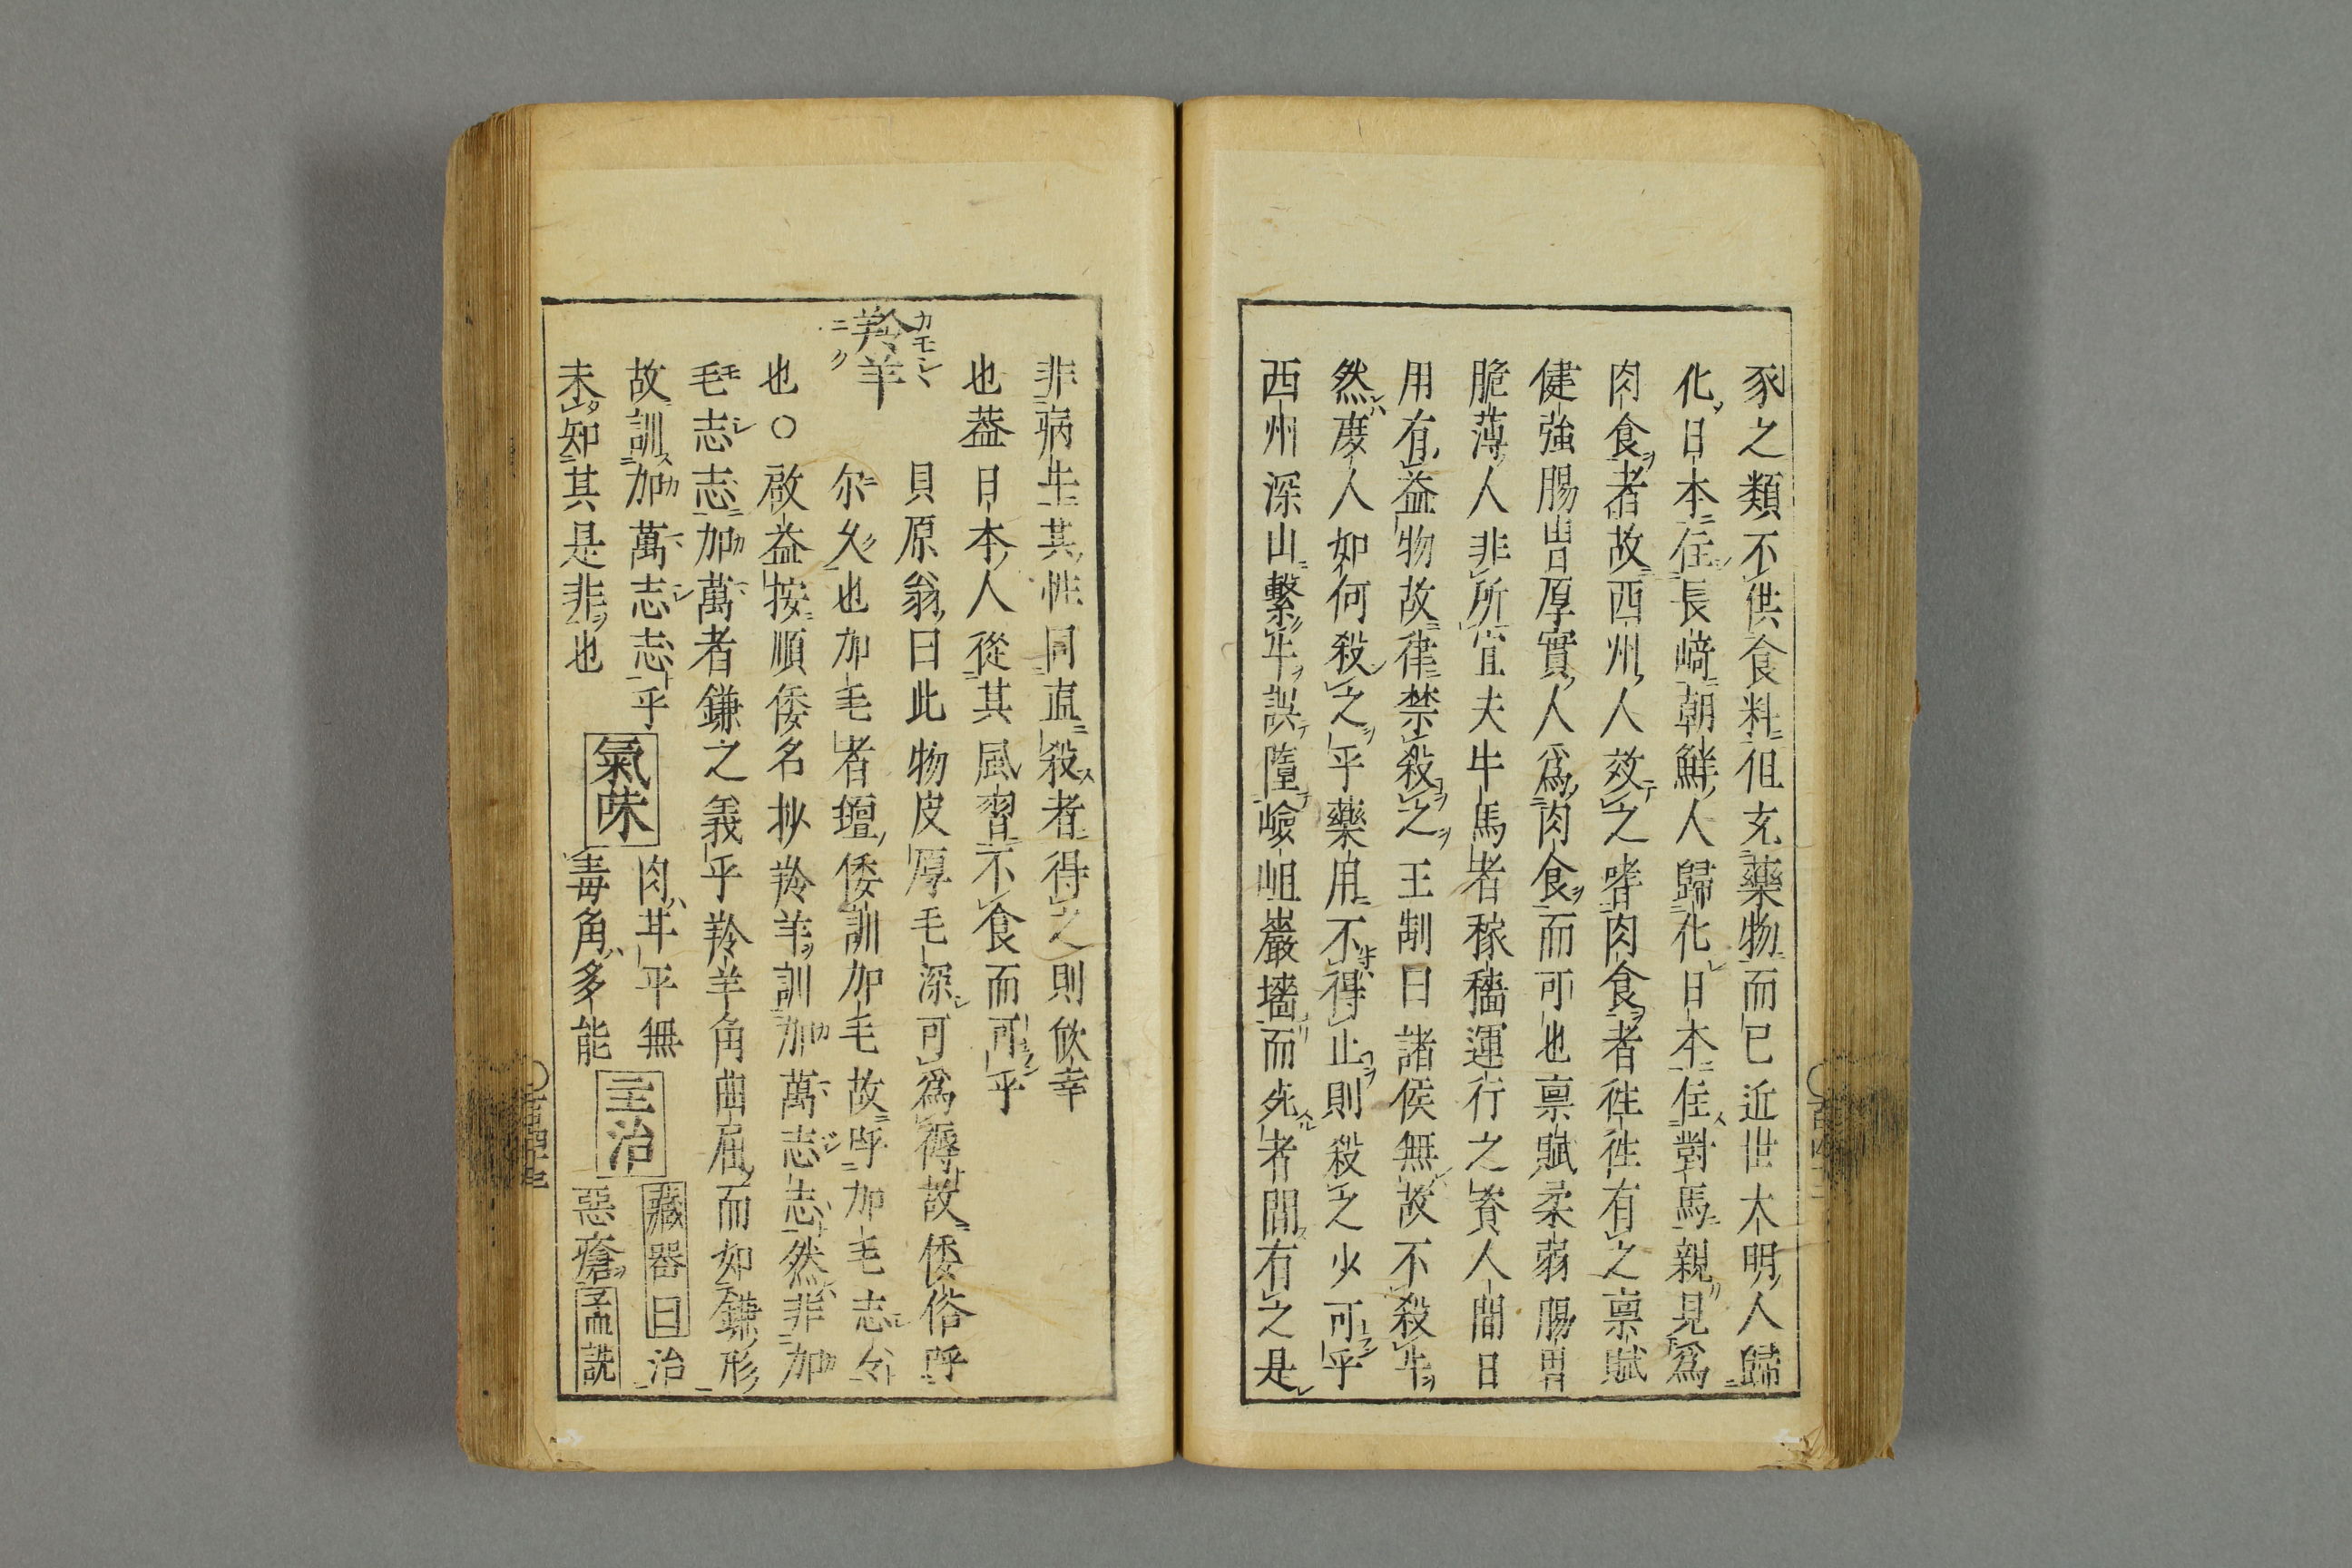 豕之類不供食料但充藥物而已近世大明人歸
化日本住長﨑朝鮮人歸化日本住對馬親見爲
肉食者故西州人效之嗜肉食者徃徃有之禀賦
健強腸胃厚實人爲肉食而可也禀賦柔弱腸胃
脆薄人非所宜夫牛馬者稼穡運行之賚人間日
用有益物故律禁殺之王制曰諸侯無故不殺牛
然度人如何殺之乎藥用不得止則殺之少可乎
西州深山繫牛誤墮嶮岨巖墻而死者間有之是
非病牛其性同直殺者得之則飮幸
也葢日本人從其風習不食而可乎
羚羊
カモシヽ
ニク
貝原翁曰此物皮厚毛深可爲褥故倭俗呼
尓久也加毛者氊倭訓加毛故呼加毛志々
也○啟益按順倭名抄羚羊訓加萬志志然非加
毛志志加萬者鎌之義乎羚羊角曲屈而如鎌形
故訓加萬志志乎氣味肉甘平無毒角多能主治藏器曰治惡瘡孟詵
未知其是非也